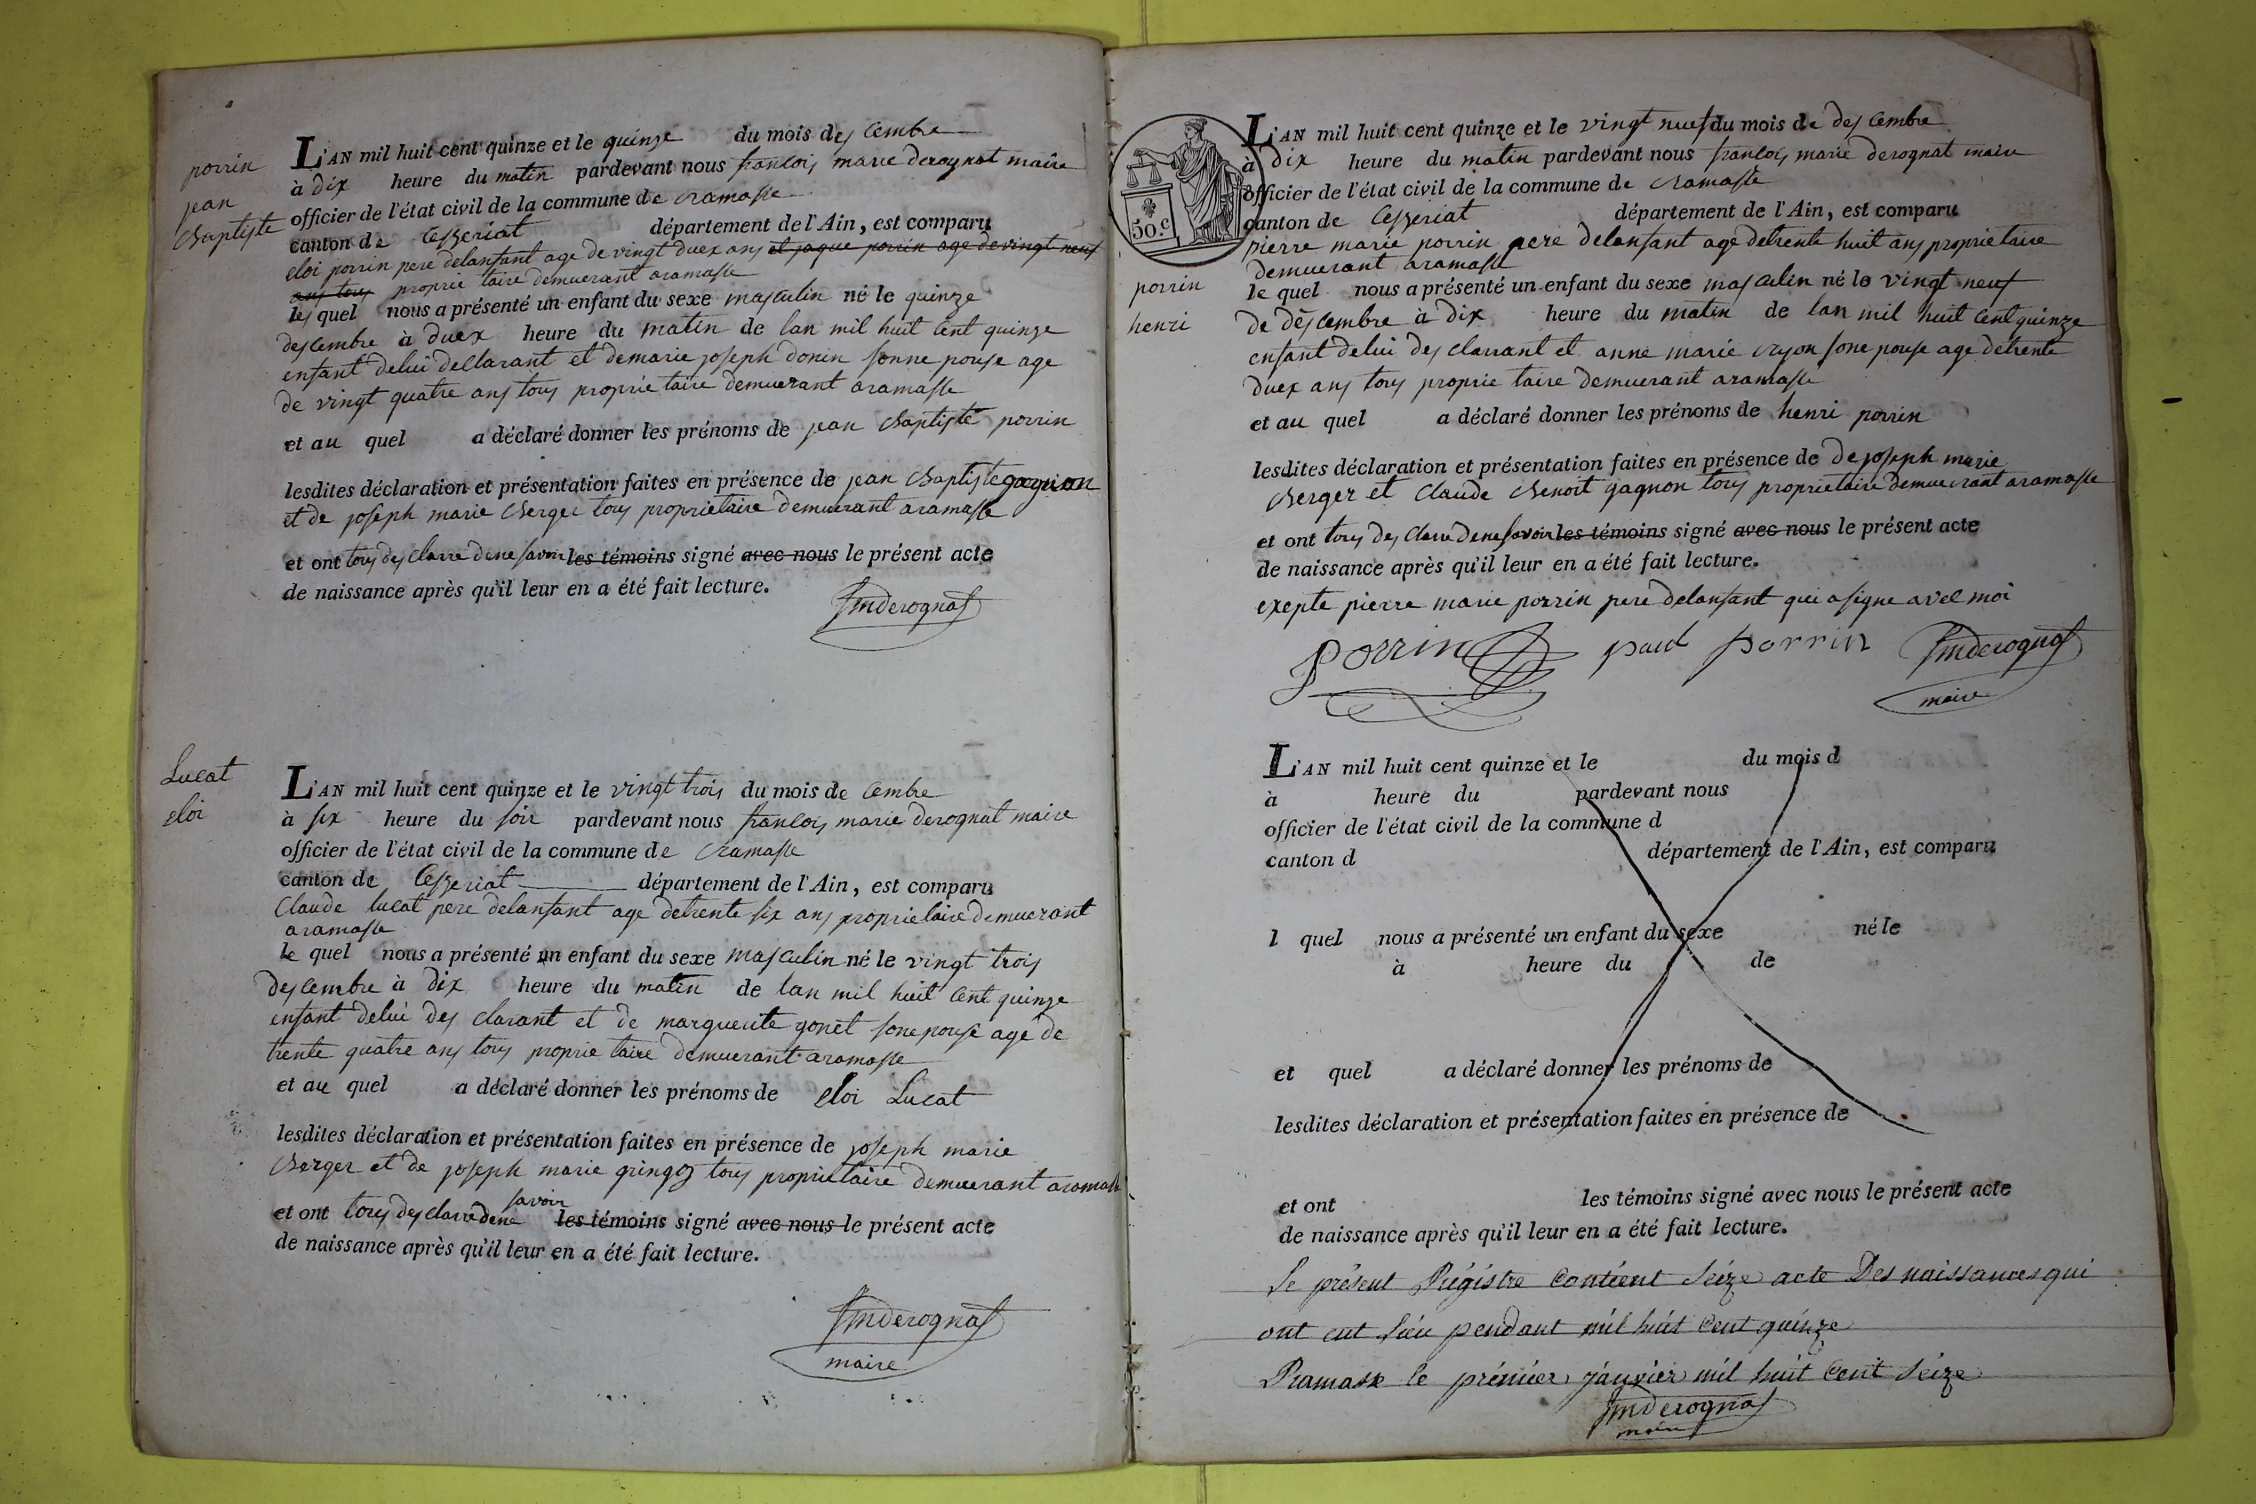 porrin
jean
Baptiste
L'AN mil huit cent quinze et le quinze du mois de descembre
à dix heure du matin pardevant nous francois marie derognat maire
officier de l'état civil de la commune de ramasse
canton de Cesseriat département de l'Ain, est comparu
eloi porrin pere delanfant age de vingt duex ans et jaque porrin age de vingt neuf
ans tous proprie taire demeurant aramasse
les quel nous a présenté un enfant du sexe masculin né le quinze
descembre à duex heure du matin de lan mil huit cent quinze
enfant delui declarant et demarie joseph donin sonne pouse age
de vingt quatre ans tous proprie taire demuerant aramasse
et au quel a déclaré donner les prénoms de jean Baptiste porrin
lesdites déclaration et présentation faites en présence de jean Baptiste gagnion
et de joseph marie Berger tous proprietaire demuerant aramasse
et ont tous des clarre dene savoir les témoins signé avec nous le présent acte
de naissance après qu'il leur en a été fait lecture.
fmderognat
Lucat
eloi
L'AN mil huit cent quinze et le vingt trois du mois de cembre
à six heure du soir pardevant nous francois marie derognat maire
officier de l'état civil de la commune de ramasse
canton de Cesseriat département de l'Ain, est comparu
Claude lucat pere delanfant age detrente six ans proprietaire demuerant
aramasse
le quel nous a présenté un enfant du sexe masculin né le vingt trois
descembre à dix heure du matin de lan mil huit cent quinze
enfant delui des clarant et de marguerite gonet sonepouse age de
trente quatre ans tous proprie taire demuerant aramasse
et au quel a déclaré donner les prénoms de eloi Lucat
lesdites déclaration et présentation faites en présence de joseph marie
Berger et de joseph marie gringoz tous proprietaire demuerant aramasse
savoir
et ont tous des clarre dene les témoins signé avec nous le présent acte
de naissance après qu'il leur en a été fait lecture.
fmderognat
maire
50.c
porrin
henri
L'AN mil huit cent quinze et le vingt neuf du mois de des cembre
à dix heure du matin pardevant nous francois marie derognat maire
officier de l'état civil de la commune de ramasse
canton de Cesseriat département de l'Ain, est comparu
pierre marie porrin pere delanfant age detrente huit ans proprietaire
demuerant aramasse
le quel nous a présenté un enfant du sexe masculin né le vingt neuf
de descembre à dix heure du matin de lan mil huit cent quinze
enfant delui des clarrant et anne marie ryon sone pouse age detrente
duex ans tous proprie taire demuerant aramasse
et au quel a déclaré donner les prénoms de henri porrin
lesdites déclaration et présentation faites en présence de de joseph marie
Berger et Claude Benoit gagnon tous proprietaire demuerant aramasse
et ont tous des clarre dene savoir les témoins signé avec nous le présent acte
de naissance après qu'il leur en a été fait lecture.
exepte pierre marie porrin pere delanfant qui a signe avec moi
porrin paul porrin fmderognat
maire
L'AN mil huit cent quinze et le du mois d
à heure du pardevant nous
officier de l'état civil de la commune d
canton d département de l'Ain, est comparu
l quel nous a présenté un enfant du sexe né le
à heure du de
et quel a déclaré donner les prénoms de
lesdites déclaration et présentation faites en présence de
et ont les témoins signé avec nous le présent acte
de naissance après qu'il leur en a été fait lecture.
Le présent Régistre contient seize acte Des naissances qui
ont eut lieu pendant mil huit cent quinze
Ramasse le prémier jánvier mil huit cent seize
fmderognat
maire